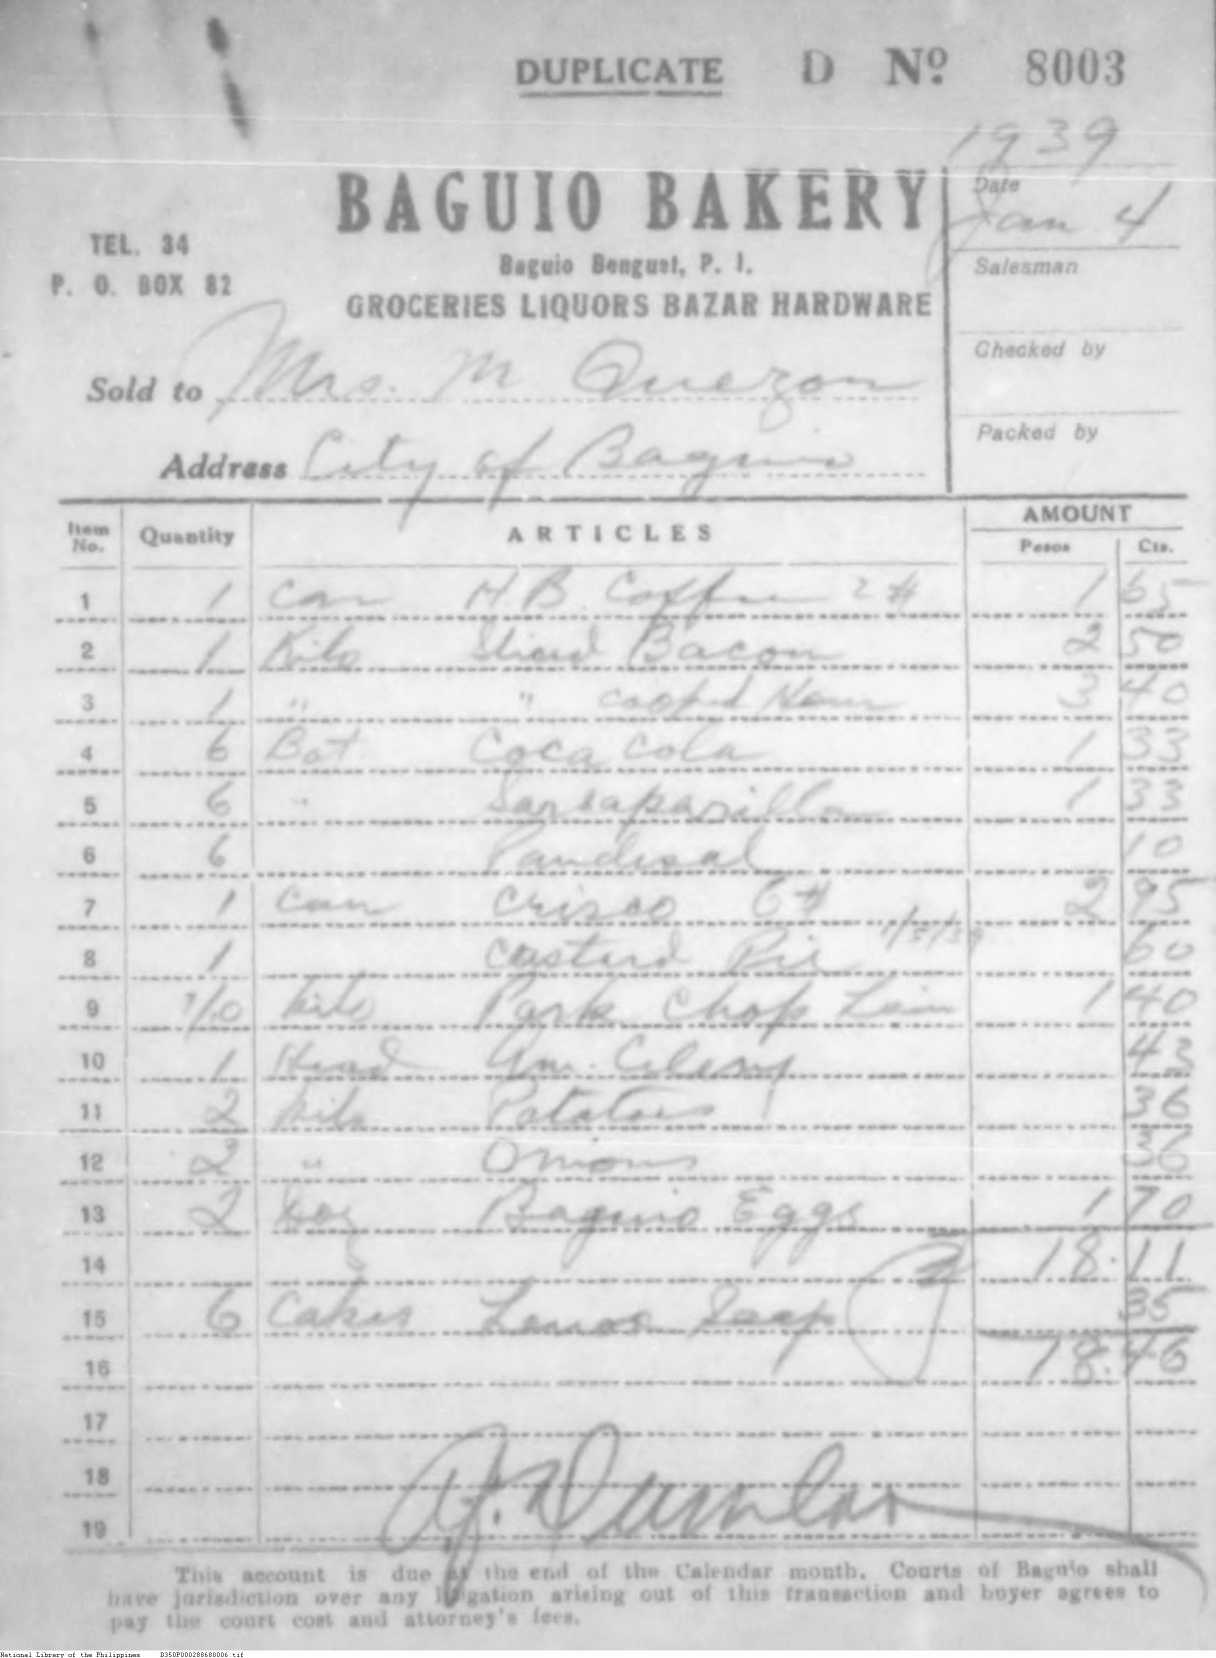 DUPLICATE D Nº 8003
1939
BAGUIO BAKERY
Date
Jan 4
TEL. 34
Baguio Benguet, P. I.
Salesman
P. O. BOX 82
GROCERIES LIQUORS BAZAR HARDWARE
Checked by
Sold to Mrs. M Quezon
Packed by
Address City of Baguio
Item No. Quantity ARTICLES AMOUNT
Pesos Cts.
1 1 Can H.B. Coffee 2# 1 65
2 1 Kilo Sliced Bacon 2 50
3 1 " " cooked Ham 3 40
4 6 Bot Coca Cola 1 33
5 6 " Sarsaparilla 1 33
6 6 Pandesal 10
7 1 Can Crisco 6# 2 95
8 1 Custard Pie 1/5/39 60
9 1/0 kilo Pork Chop Loin 1 40
10 1 Head Am. Celery 43
11 2 kilo Potatoes 36
12 2 " Onions 36
13 2 Doz Baguio Eggs 1 70
14 18.11
15 6 Cakes Soap 35
16 18.46
17
18
19
This account is due at the end of the Calendar month. Courts of Baguio shall
have jurisdiction over any litigation arising out of this transaction and buyer agrees to
pay the court cost and attorney's fees.
National Library of the Philippines B350P000288680006.tif